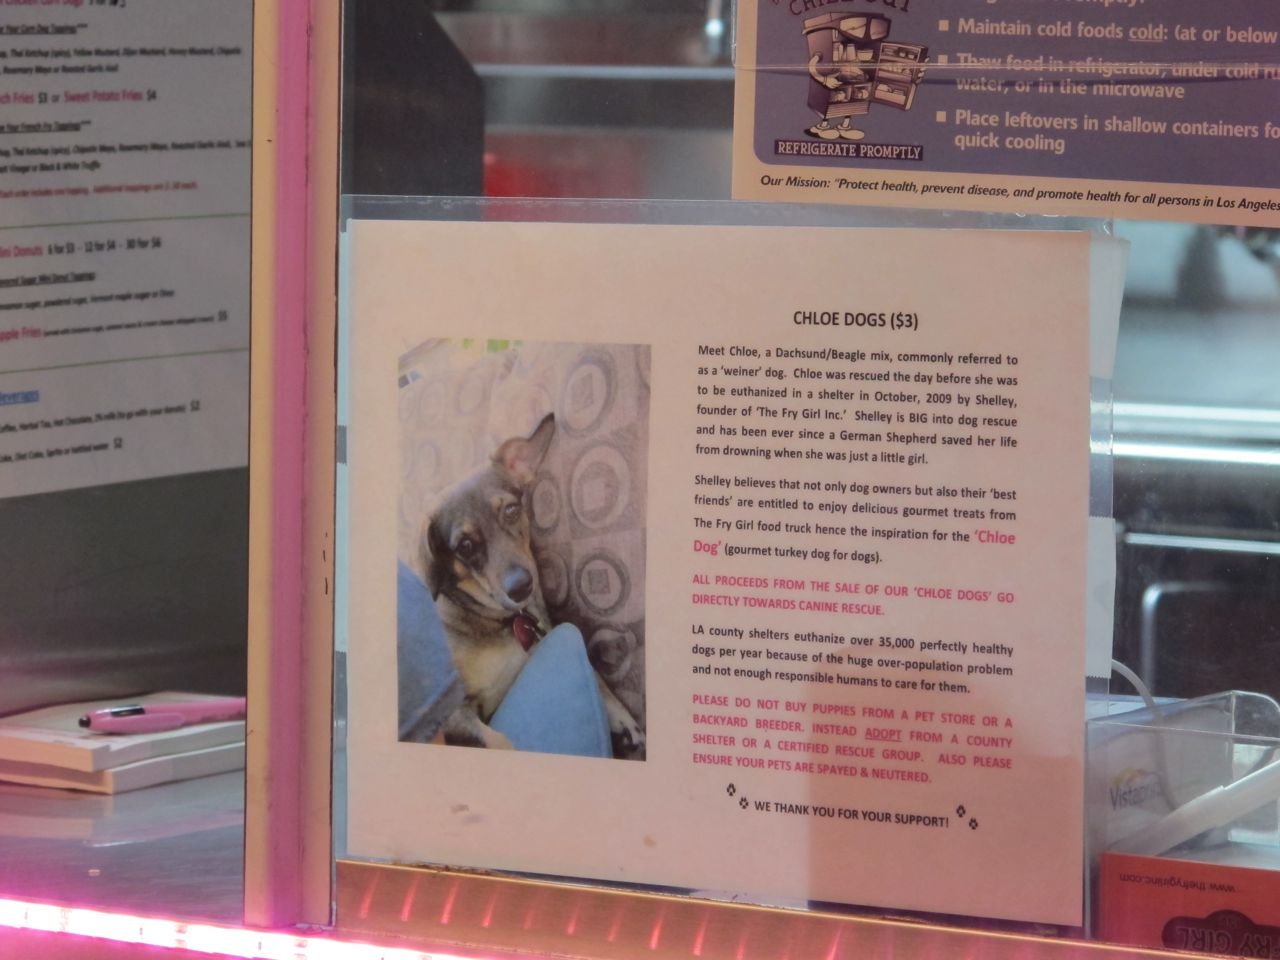 ch Fries $3 or Sweet Potato Fries $4
ini Donuts 6 for $3 - 12 for $4 - 30 for $6
pple Fries $5
Beverages
Coke, Diet Coke, Sprite or bottled water $2
CHILL OUT
REFRIGERATE PROMPTLY
Maintain cold foods cold: (at or below
Thaw food in refrigerator, under cold ru
water, or in the microwave
Place leftovers in shallow containers fo
quick cooling
Our Mission: "Protect health, prevent disease, and promote health for all persons in Los Angeles
CHLOE DOGS ($3)
Meet Chloe, a Dachsund/Beagle mix, commonly referred to
as a 'weiner' dog. Chloe was rescued the day before she was
to be euthanized in a shelter in October, 2009 by Shelley,
founder of 'The Fry Girl Inc.' Shelley is BIG into dog rescue
and has been ever since a German Shepherd saved her life
from drowning when she was just a little girl.
Shelley believes that not only dog owners but also their 'best
friends' are entitled to enjoy delicious gourmet treats from
The Fry Girl food truck hence the inspiration for the 'Chloe
Dog' (gourmet turkey dog for dogs).
ALL PROCEEDS FROM THE SALE OF OUR 'CHLOE DOGS' GO
DIRECTLY TOWARDS CANINE RESCUE.
LA county shelters euthanize over 35,000 perfectly healthy
dogs per year because of the huge over-population problem
and not enough responsible humans to care for them.
PLEASE DO NOT BUY PUPPIES FROM A PET STORE OR A
BACKYARD BREEDER. INSTEAD ADOPT FROM A COUNTY
SHELTER OR A CERTIFIED RESCUE GROUP. ALSO PLEASE
ENSURE YOUR PETS ARE SPAYED & NEUTERED.
WE THANK YOU FOR YOUR SUPPORT!
Vistaprint
www.thefrygirlinc.com
RY GIRL